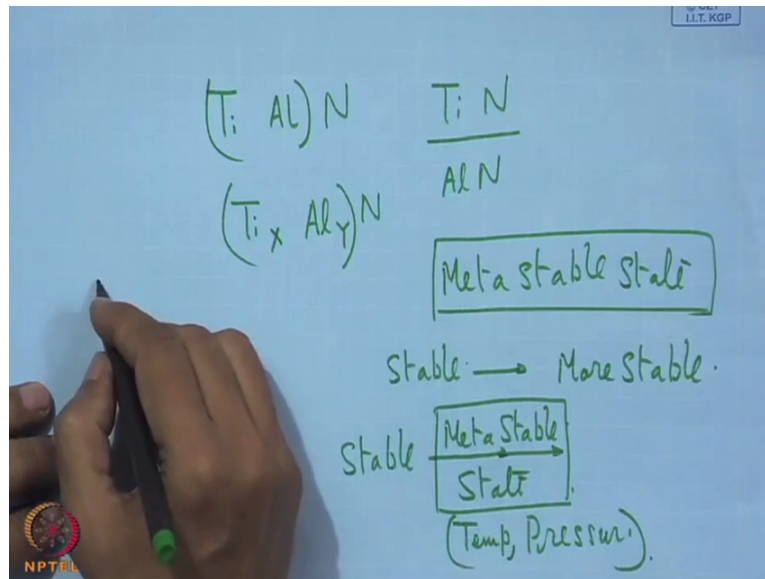 © CET
I.I.T. KGP
(Ti Al) N
Ti N
Al N
(Ti x Al y) N
Meta stable State
Stable → More Stable.
Stable Meta Stable State
(Temp, Pressur.).
NPTEL